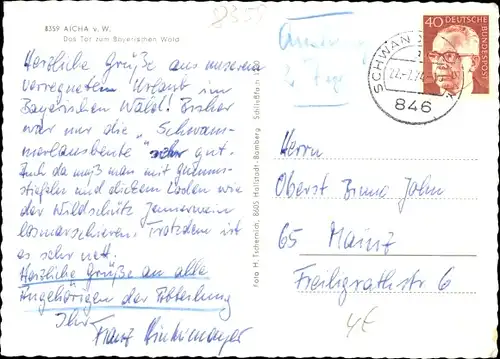 8359 AICHA v. W.
Das Tor zum Bayerischen Wald
Herzliche Grüße aus unserem
verregneten Urlaub im
Bayerischen Wald! Bisher
war nur die "Schwam-
merlausbeute" sehr gut.
Auch da muß man mit Gummi-
stiefeln und dickem Loden wie
der Wildschütz Jennerwein
losmarschieren. Trotzdem ist
es sehr nett.
Herzliche Grüße an alle
Angehörigen der Abteilung
Ihr Franz
Foto H. Tschernich, 8605 Hallstadt-Bamberg
40 DEUTSCHE
BUNDESPOST
SCHWAN
846
Herrn
Oberst Bruno John
65 Mainz
Freiligrathstr 6
4E